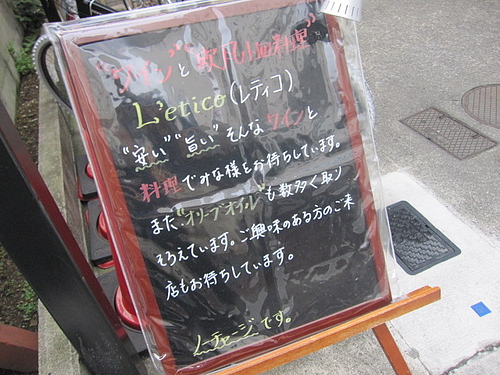 "ワイン"と"欧風小皿料理"
L'etico(レティコ)
"安い""旨い"そんなワインと
料理でみな様をお待ちしています。
また"オリーブオイル"も数多く取り
そろえています。ご興味のある方のご来
店もお待ちしています。
ノーチャージです。